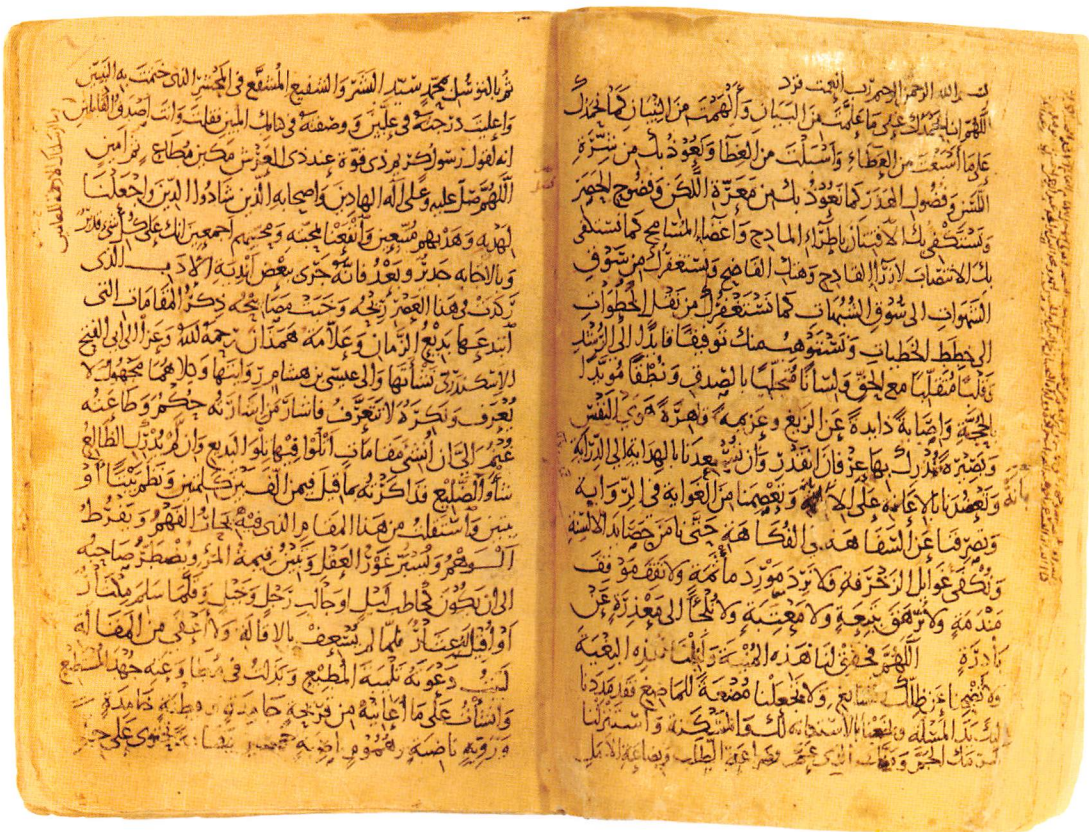 بسم الله الرحمن الرحيم رب أنعمت فزد
اللهم انا نحمدك على ما علمت من البيان وألهمت من التبيان كما نحمدك
على ما أسبغت من العطاء وأسبلت من الغطا ونعوذ بك من شرة
اللسن وفضول الهذر كما نعوذ بك من معرة اللكن وفضوح الحصر
ونستكفي بك الافتتان باطراء المادح واغضاء المسامح كما نستكفي
بك الانتصاب لازراء القادح وهتك الفاضح ونستغفرك من سوق
الشهوات الى سوق الشبهات كما نستغفرك من نقل الخطوات
الى خطط الخطيات ونستوهب منك توفيقا قائدا الى الرشد
وقلبا متقلبا مع الحق ولسانا متحليا بالصدق ونطقا مؤيدا
بالحجة واصابة ذايدة عن الزيغ وعزيمة قاهرة هوى النفس
وبصيرة ندرك بها عرفان القدر وأن تسعدنا بالهداية الى الدراية
وتعضدنا بالاعانة على الابانة وتعصمنا من الغواية في الرواية
وتصرفنا عن السفاهة في الفكاهة حتى نامن حصائد الالسنة
ونكفى غوائل الزخرفة فلا نرد مورد مأثمة ولا نقف موقف
مندمة ولا نرهق بتبعة ولا معتبة ولا نلجأ الى معذرة عن
بادرة اللهم فحقق لنا هذه المنية وأنلنا هذه البغية
ولا تضحنا عن ظلك السابغ ولا تجعلنا مضغة للماضغ فقد مددنا
اليك يد المسئلة وبخعنا بالاستكانة لك والمسكنة واستنزلنا
كرمك الجم الذي عم بضراعة الطلب وبضاعة الامل
ثم بالتوسل بمحمد سيد البشر والشفيع المشفع في المحشر الذي ختمت به النبيين
واعليت درجته في عليين ووصفته في كتابك المبين فقلت وانت اصدق القائلين
انه لقول رسول كريم ذي قوة عند ذي العرش مكين مطاع ثم امين
اللهم صل عليه وعلى آله الهادين واصحابه الذين شادوا الدين واجعلنا
لهديه وهديهم متبعين وانفعنا بمحبته ومحبتهم اجمعين انك على كل شيء قدير
وبالاجابة جدير وبعد فانه جرى ببعض اندية الادب الذي
ركدت في هذا العصر ريحه وخبت مصابيحه ذكر المقامات التي
ابتدعها بديع الزمان وعلامة همذان رحمة الله وعزا الى ابي الفتح
الاسكندري نشأتها والى عيسى بن هشام روايتها وكلاهما مجهول لا
يعرف ونكرة لا تتعرف فاشار من اشارته حكم وطاعته
غنم الى ان أنشئ مقامات أتلو فيها تلو البديع وان لم يدرك الظالع
شأو الضليع فذاكرته بما قيل فيمن الف بين كلمتين ونظم بيتا أو
بيتين واستقلت من هذا المقام الذي فيه يحار الفهم ويفرط
الوهم ويسبر غور العقل وتبين قيمة المرء ويضطر صاحبه
الى ان يكون كحاطب ليل او جالب رجل وخيل وقلما سلم مكثار
أو أقيل له عثار فلما لم يسعف بالاقالة ولا أعفى من المقالة
لبيت دعوته تلبية المطيع وبذلت في جهد المستطيع
وانشأت على ما أعانيه من قريحة جامدة وفطنة خامدة
وروية ناضبة وهموم ناصبة